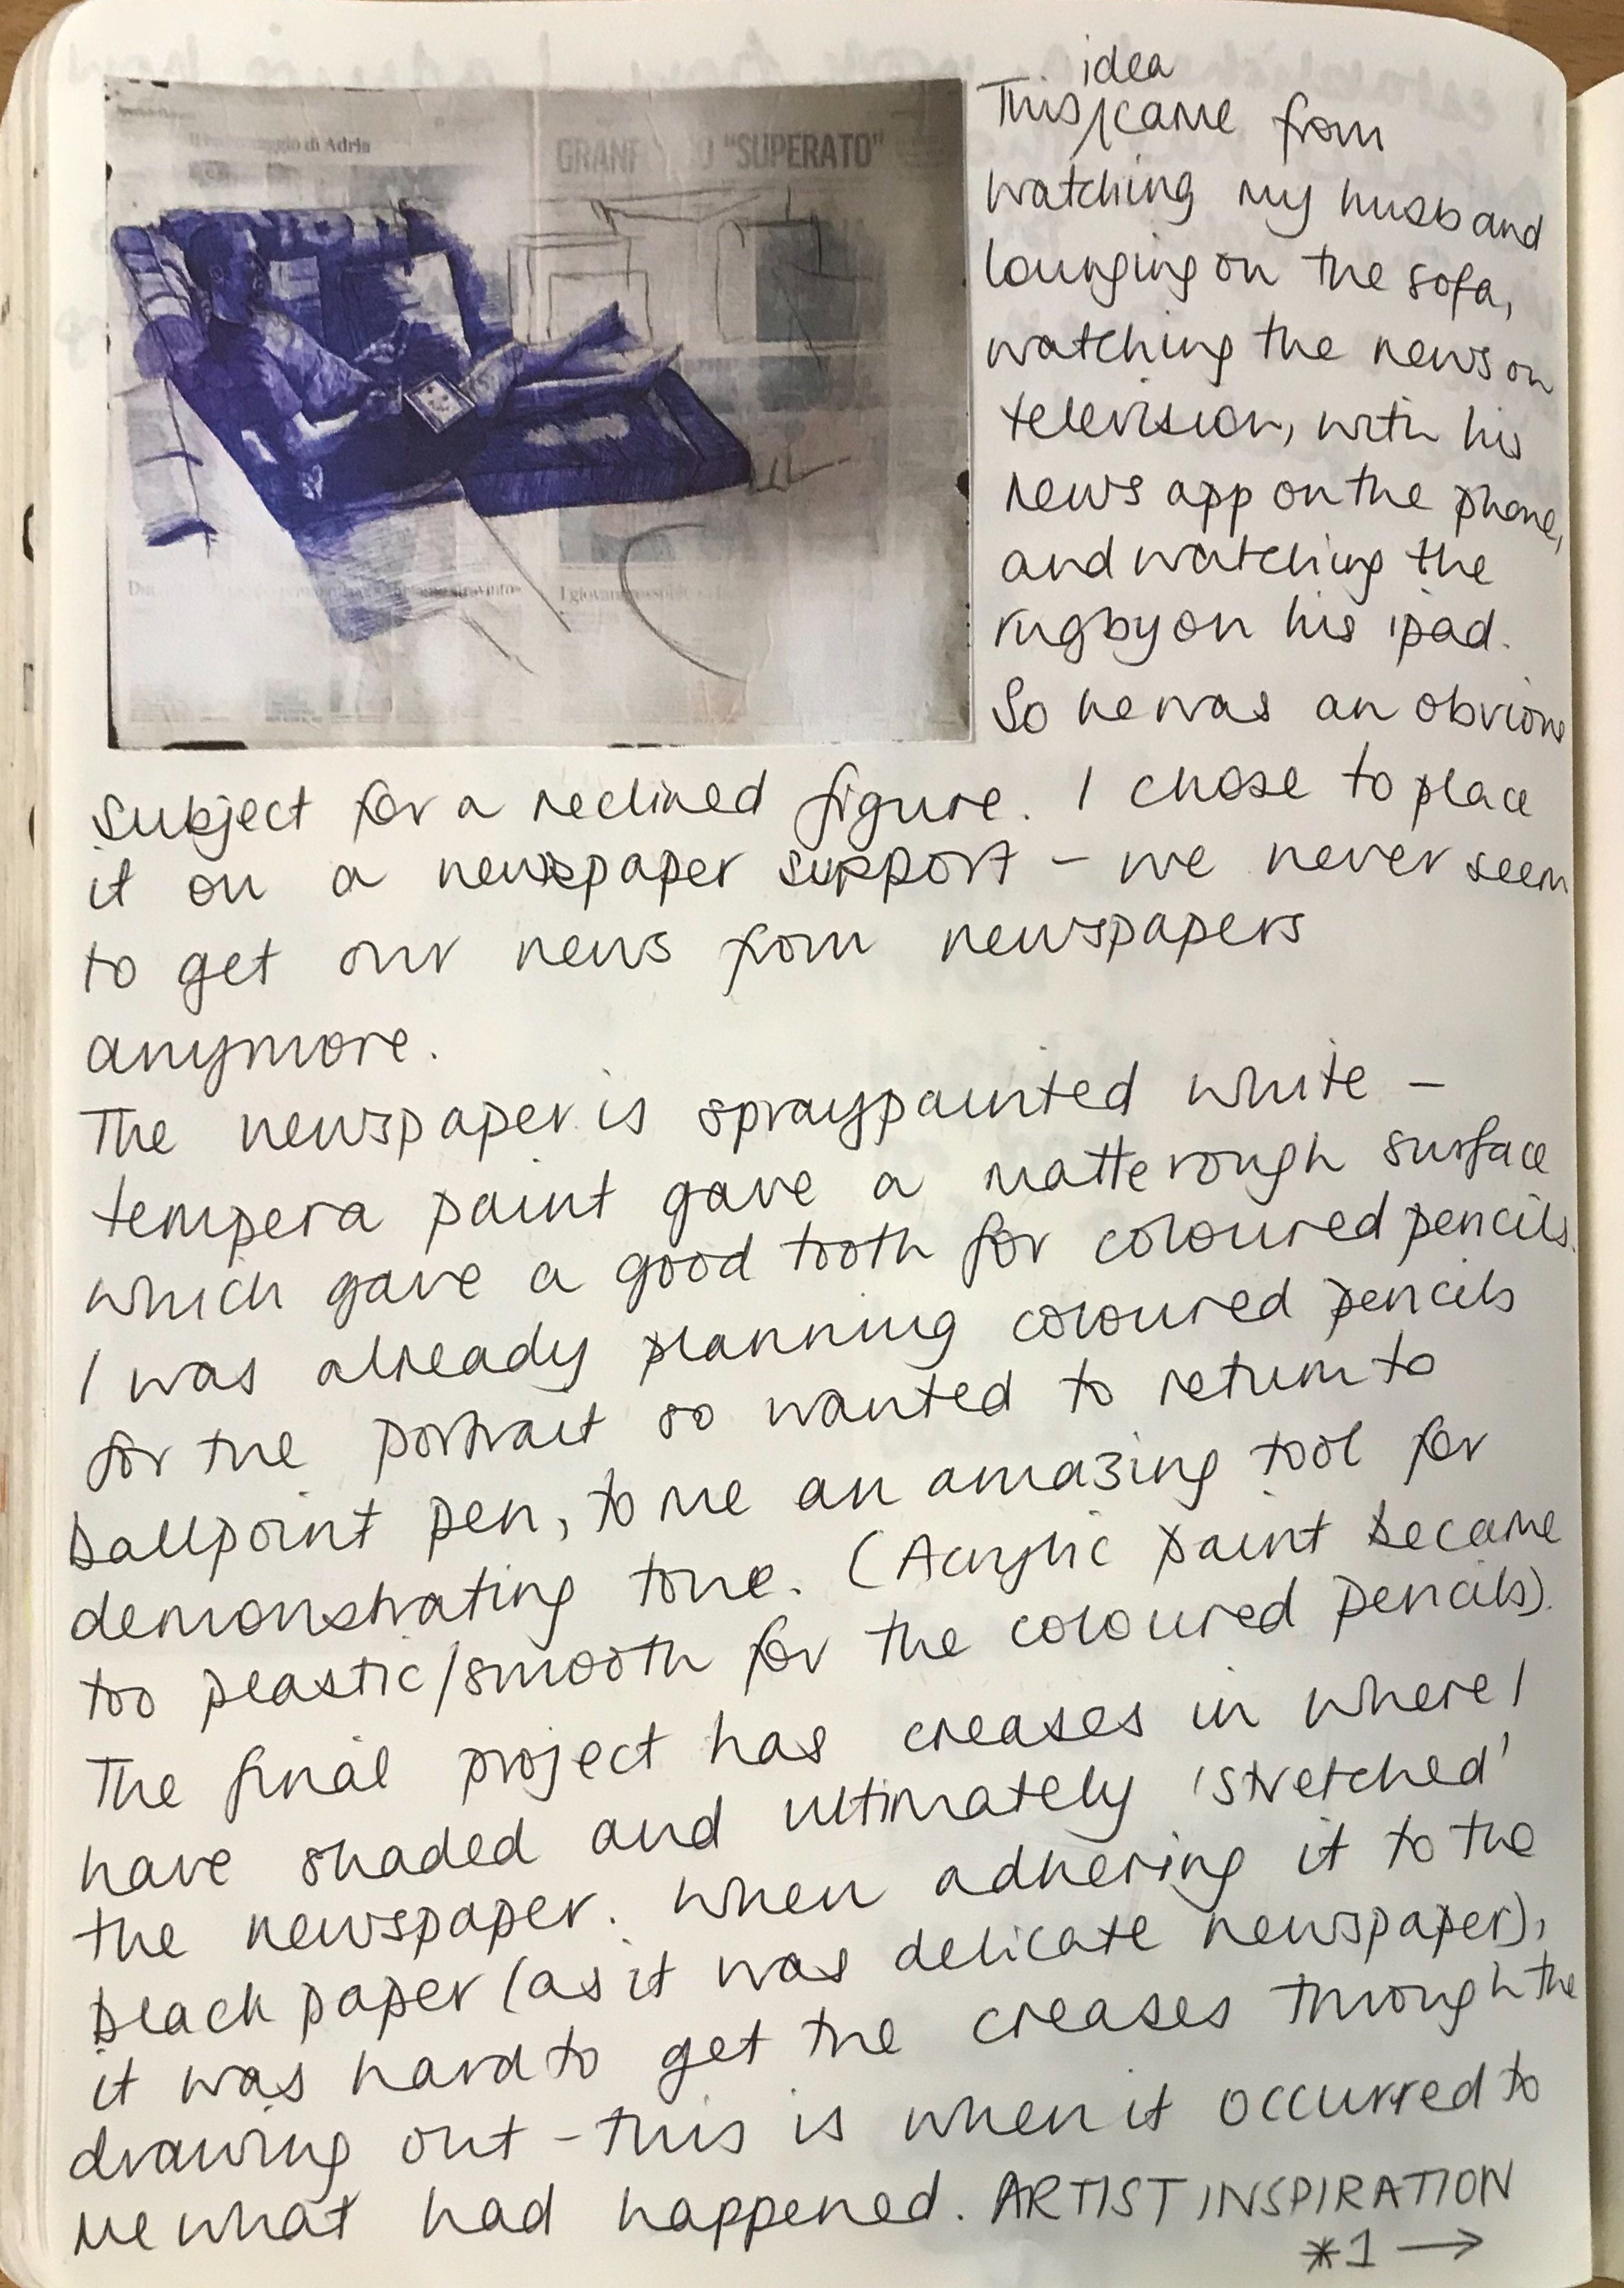 Il personaggio di Adria
GRAN "SUPERATO"
I giovani
idea
This/came from
watching my husband
lounging on the sofa,
watching the news on
television, with his
news app on the phone,
and watching the
rugby on his ipad.
So he was an obvious
subject for a reclined figure. I chose to place
it on a newspaper support – we never seem
to get our news from newspapers
anymore.
The newspaper is spraypainted white –
tempera paint gave a matte rough surface
which gave a good tooth for coloured pencils.
I was already planning coloured pencils
for the portrait so wanted to return to
ballpoint pen, to me an amazing tool for
demonstrating tone. (Acrylic paint became
too plastic/smooth for the coloured pencils).
The final project has creases in where I
have shaded and ultimately 'stretched'
the newspaper. When adhering it to the
black paper (as it was delicate newspaper),
it was hard to get the creases through the
drawing out – this is when it occurred to
me what had happened. ARTIST INSPIRATION
*1 →